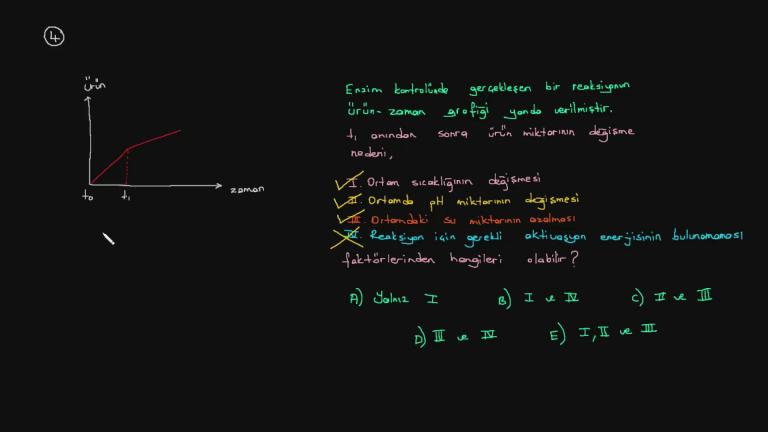 4
Ürün
t₀
t₁
zaman
Enzim kontrolünde gerçekleşen bir reaksiyonun
ürün-zaman grafiği yanda verilmiştir.
t₁ anından sonra ürün miktarının değişme
nedeni,
I. Ortam sıcaklığının değişmesi
II. Ortamda pH miktarının değişmesi
III. Ortamdaki su miktarının azalması
IV. Reaksiyon için gerekli aktivasyon enerjisinin bulunamaması
faktörlerinden hangileri olabilir?
A) Yalnız I
B) I ve IV
C) II ve III
D) III ve IV
E) I, II ve III